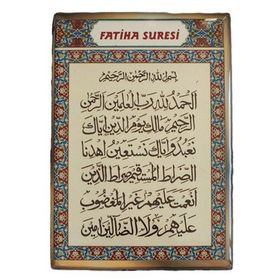 FATİHA SURESİ
بسم الله الرحمن الرحيم
الحمد لله رب العالمين الرحمن
الرحيم مالك يوم الدين اياك
نعبد واياك نستعين اهدنا
الصراط المستقيم صراط الذين
انعمت عليهم غير المغضوب
عليهم ولا الضالين امين